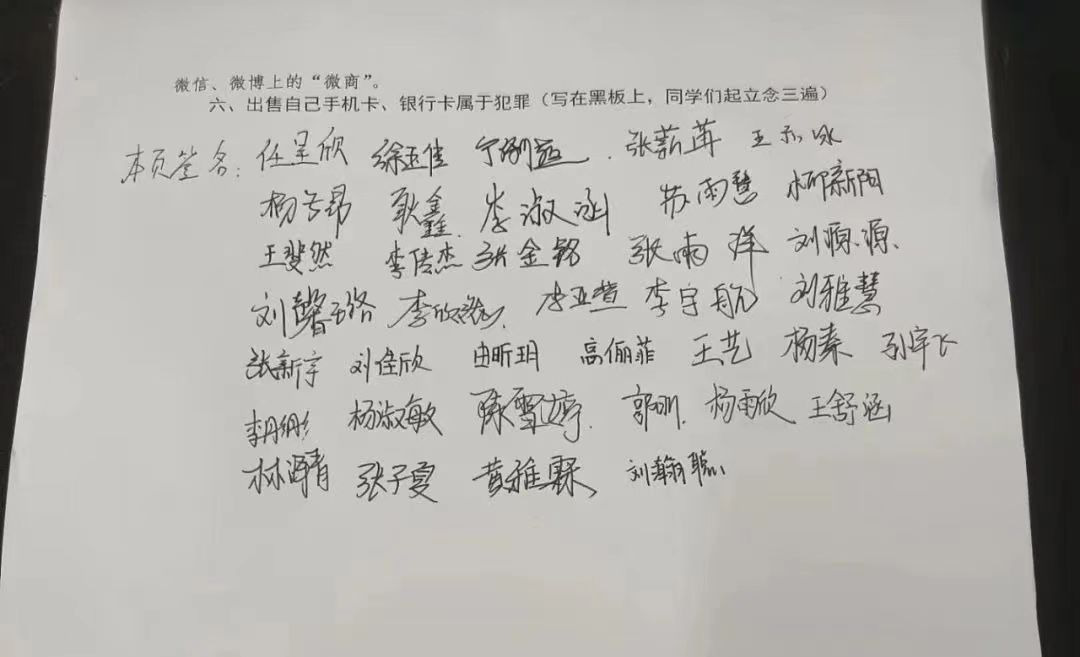 微信、微博上的“微商”。
六、出售自己手机卡、银行卡属于犯罪（写在黑板上，同学们起立念三遍）
本页签名：任星欣 徐玉佳 张薪苒
耿鑫 李淑涵 苏雨慧 柳新阳
王斐然 李传杰 张金铭 张雨洋 刘源源
刘馨璐 李亚萱 李宇航 刘雅慧
张新宇 刘佳欣 由昕玥 高俪菲 王艺 杨素 孙宇飞
杨淑敏 陈雪婷 郭明 杨雨欣 王舒涵
张子夏 黄雅霖 刘瀚聪